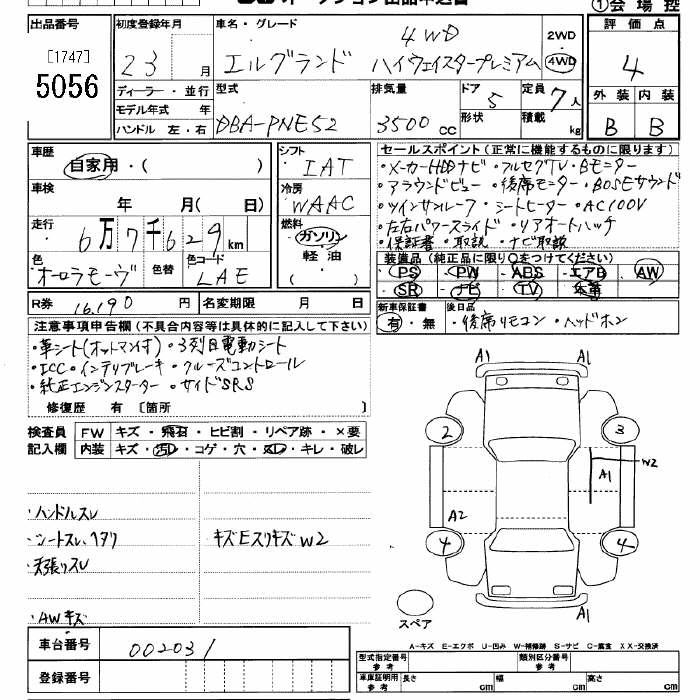 オークション出品申込書
①会場控
出品番号
[1747]
5056
初度登録年月
23 月
ディーラー・並行
モデル年式 年
ハンドル 左・右
車名・グレード
4WD
エルグランド ハイウェイスタープレミアム
2WD
4WD
型式
DBA-PNE52
排気量
3500 cc
ドア 5
形状
定員 7人
積載 kg
評価点
4
外装 内装
B B
車歴
自家用・( )
車検
年 月( 日)
走行
6万7千629 km
色
オーロラモーヴ
色替
色コード
LAE
シフト
IAT
冷房
WAAC
燃料
ガソリン
軽油
( )
セールスポイント(正常に機能するものに限ります)
・メーカーHDDナビ・フルセグTV・Bモニター
・アラウンドビュー・後席モニター・BOSEサウンド
・ツインサンルーフ・シートヒーター・AC100V
・左右パワースライド・リアオートハッチ
・保証書・取説・ナビ取説
装備品(純正品に限り○をつけてください)
PS・PW・ABS・エアB・AW
SR・ナビ・TV・本革
R券 16,190 円
名変期限 月 日
新車保証書
有・無
後日品
・後席リモコン・ヘッドホン
注意事項申告欄(不具合内容等は具体的に記入して下さい)
・革シート(オットマン付)・3列目電動シート
・ICC・インテリブレーキ・クルーズコントロール
・純正エンジンスターター・サイドSRS
修復歴 有 [箇所 ]
検査員
記入欄
FW キズ・飛石・ヒビ割・リペア跡・×要
内装 キズ・汚レ・コゲ・穴・スレ・キレ・破レ
・ハンドルスレ
・シートスレ、ヘタリ
・天張リスレ
・AWキズ
キズEスリキズW2
A1 A1
2 3
W2
A1
A2
4 4
A1
スペア
車台番号 002031
登録番号
A-キズ E-エクボ U-凹み W-補修跡 S-サビ C-腐食 XX-交換済
型式指定番号 参考
類別区分番号 参考
車庫証明用 参考
長さ cm 幅 cm 高さ cm